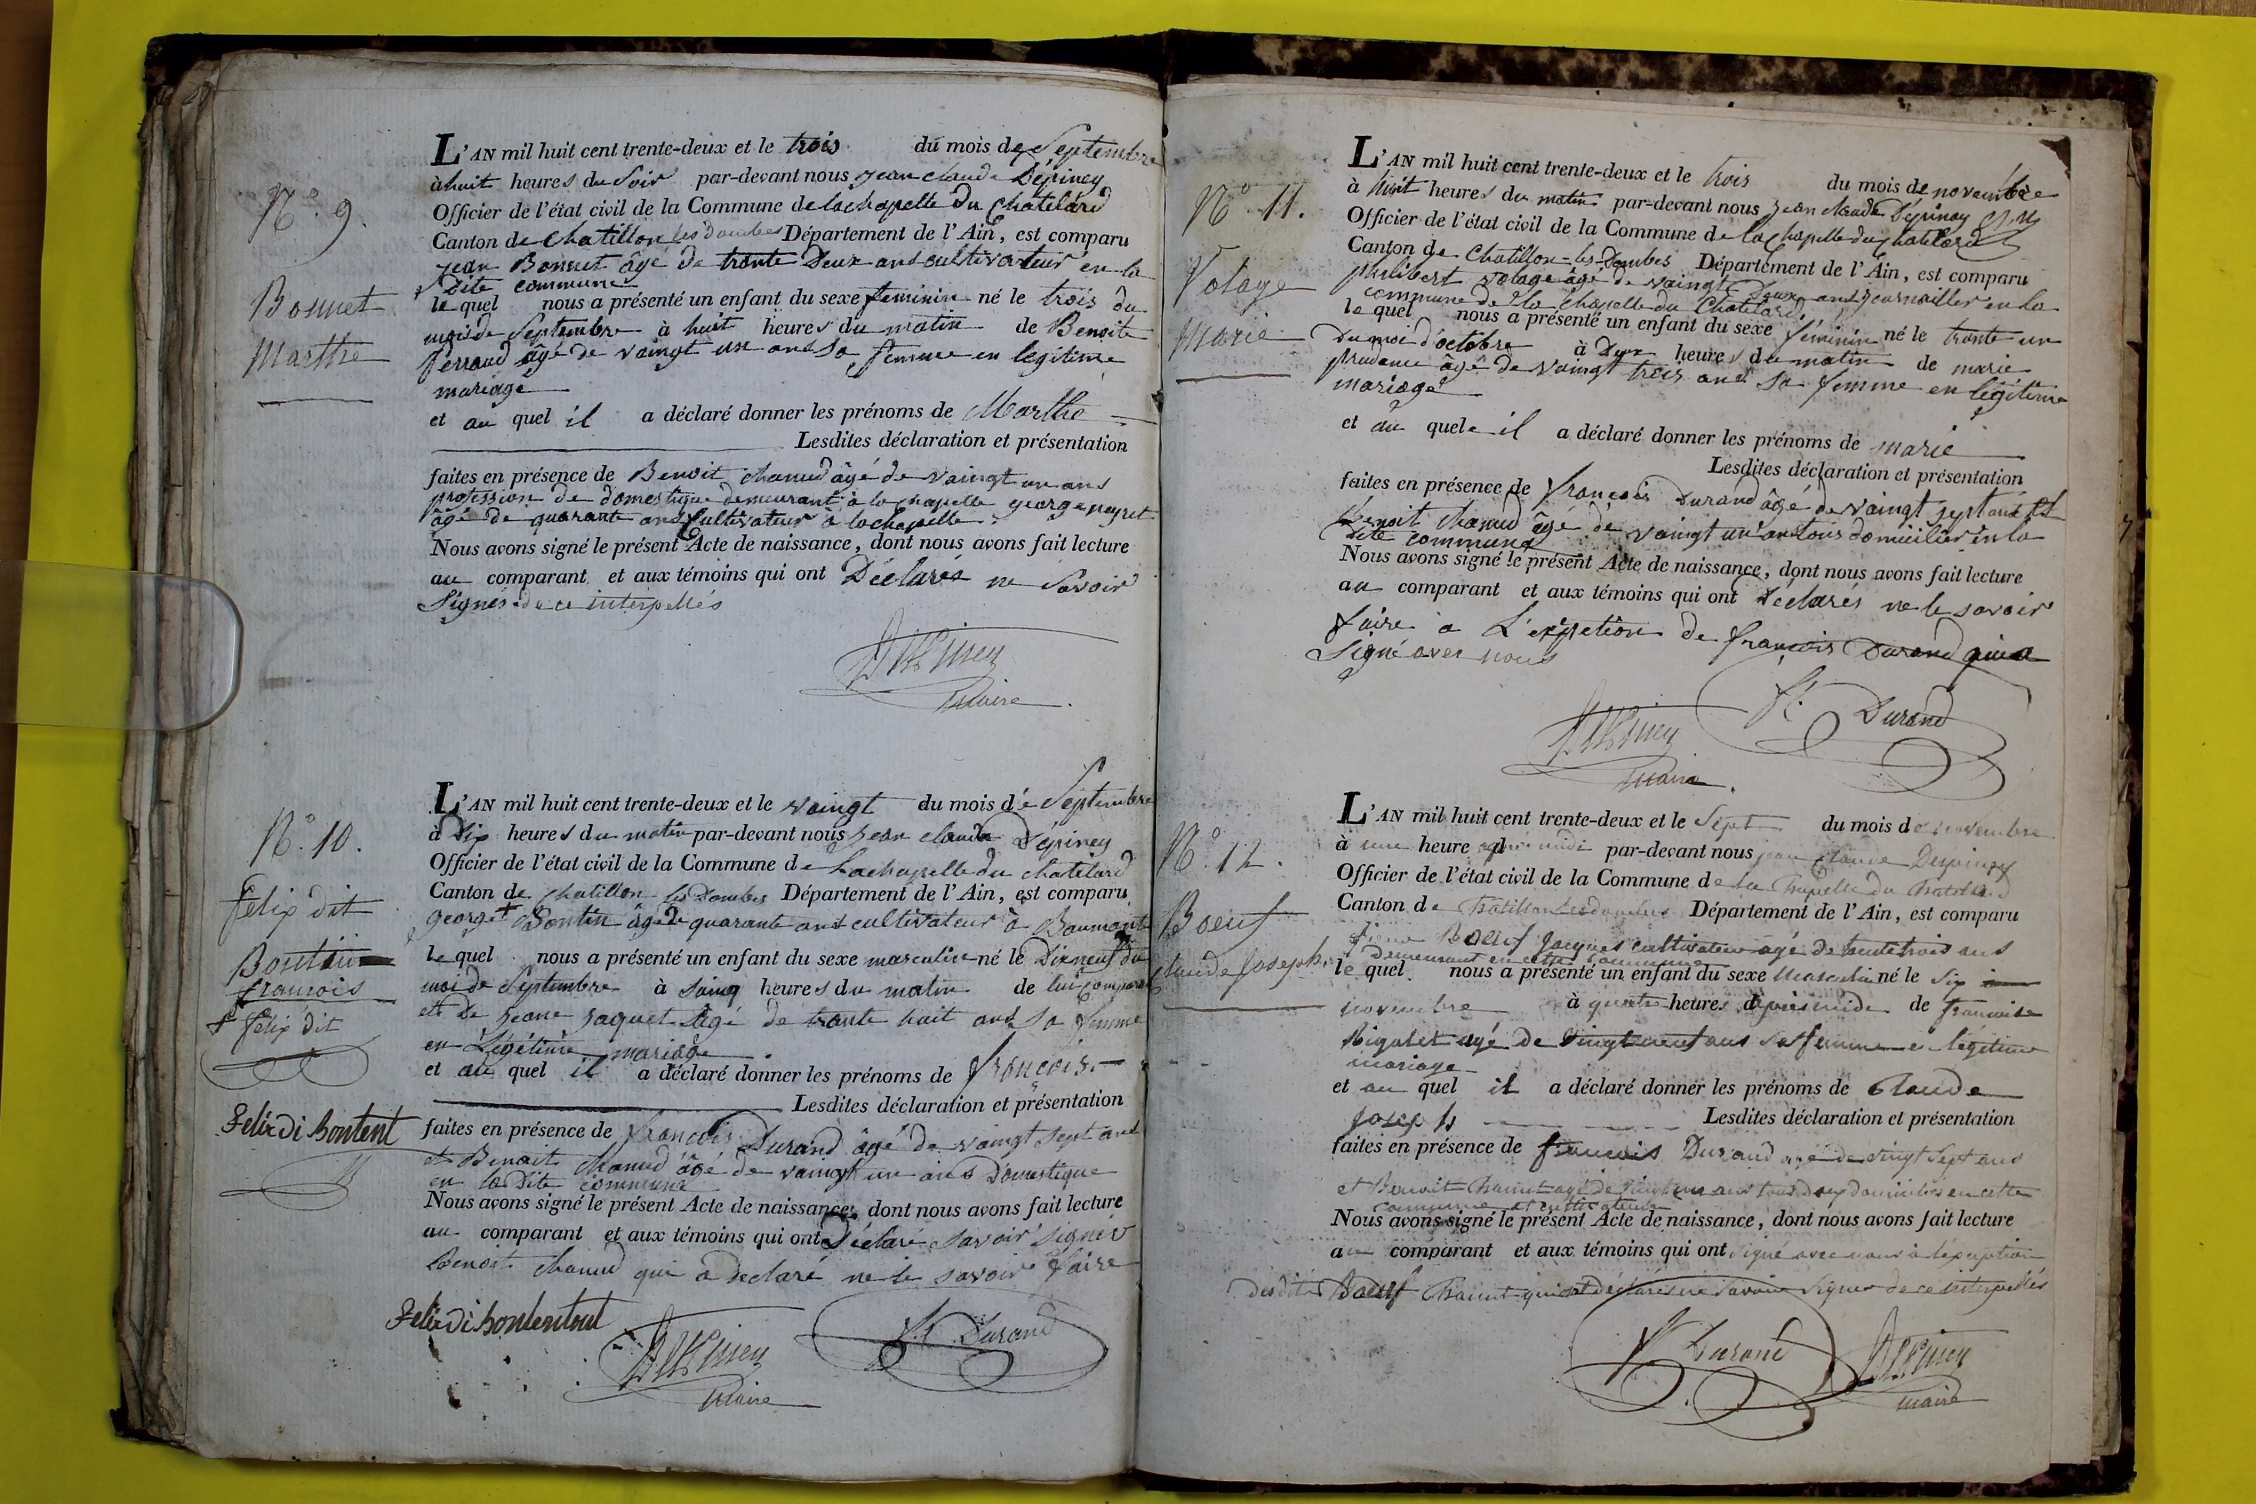 N.o 9.
Bonnet
Marthe
L'AN mil huit cent trente-deux et le trois du mois de Septembre
à huit heures du Soir par-devant nous jean claude Dépiney
Officier de l'état civil de la Commune de lachapelle Du Chatelard
Canton de Chatillon les dombes Département de l'Ain, est comparu
jean Bonnet âge de trante Deux ans cultivateur en la
Dite commune
le quel nous a présenté un enfant du sexe feminin né le trois du
mois de Septembre à huit heures du matin de Benoite
ferraud âgé de vaingt un ans sa femme en legitime
mariage
et au quel il a déclaré donner les prénoms de Marthe
Lesdites déclaration et présentation
faites en présence de Benoit chanud âgé de vaingt un ans
profession de domestique demeurant à la chapelle george peyret
âgé de quarante ans Cultivateur à lachapelle
Nous avons signé le présent Acte de naissance, dont nous avons fait lecture
au comparant et aux témoins qui ont Déclarés ne Savoir
Signés de ce interpellés
Dépiney
maire
N.o 10.
felix dit
Bontain
francois
felix dit
Felix Di Bontent
L'AN mil huit cent trente-deux et le vaingt du mois dé Septembre
à Dix heures du matin par-devant nous jean claude Dépiney
Officier de l'état civil de la Commune de Lachapelle du chatelard
Canton de Chatillon les Dombes Département de l'Ain, est comparu
george + Bontin âgé De quarante ans cultivateur à Baumont
le quel nous a présenté un enfant du sexe masculin né le Dixneuf du
moi de Septembre à Sainq heures du matin de lui comparant
et De jeane jaquet âgé de trante huit ans Sa femme
en Légétime mariage
et au quel il a déclaré donner les prénoms de françois
Lesdites déclaration et présentation
faites en présence de françois Durand âgé de vaingt sept ans
et Benoit Chanud âgé de vaingt un ans Domestique
en la Dite commune
Nous avons signé le présent Acte de naissance, dont nous avons fait lecture
au comparant et aux témoins qui ont Déclaré Savoir Signér
Benoit chanud qui a declaré ne le savoir faire
Dépiney
maire
f. Durand
N.o 11.
Volage
Marie
L'AN mil huit cent trente-deux et le trois du mois de novembre
à huit heures du matin par-devant nous jean claude Dépiney
Officier de l'état civil de la Commune de la Chapelle du Chatelard
Canton de Chatillon-les-Dombes Département de l'Ain, est comparu
philibert volage âgé de vaingt Deux ans journailler en la
commune de la Chapelle du Chatelard
le quel nous a présenté un enfant du sexe féminin né le trante un
Du moi d'octobre à Deux heures du matin de marie
prudance âgé de vaingt trois ans sa femme en légitime
mariage
et au quel e il a déclaré donner les prénoms de marie
Lesdites déclaration et présentation
faites en présence de françois Durand âgé de vaingt sept ans et
Benoit Chanud âgé de vaingt un an tous domicilier en la
Dite commune
Nous avons signé le présent Acte de naissance, dont nous avons fait lecture
au comparant et aux témoins qui ont Déclarés ne le savoir
faire a L'exsption de françois Durand qui a
Signé avec nous
f. Durand
Dépiney
maire
N.o 12.
Boeuf
Claude Joseph
L'AN mil huit cent trente-deux et le Sept du mois de novembre
à une heure après midi par-devant nous jean Claude Depiney
Officier de l'état civil de la Commune de la Chapelle du Chatelard
Canton de Chatillon les dombes Département de l'Ain, est comparu
Boeuf Jacques cultivateur agé de trente trois ans
demeurant en cette commune
le quel nous a présenté un enfant du sexe Masculin né le Six
novembre à quatre heures d'après midi de francoise
Rigolet agé de vingt neuf ans Sa femme en légitime
mariage
et au quel il a déclaré donner les prénoms de Claude
Joseph Lesdites déclaration et présentation
faites en présence de francois Durand agé de vingt Sept ans
et Benoit Chanut agé de vingt un ans tous deux domiciliés en cette
commune et cultivateurs
Nous avons signé le présent Acte de naissance, dont nous avons fait lecture
au comparant et aux témoins qui ont signé avec nous à l'éxception
desdits Boeuf Chanut qui ont déclarés ne Savoir Signer de ce interpellés
f. Durand
Dépiney
maire